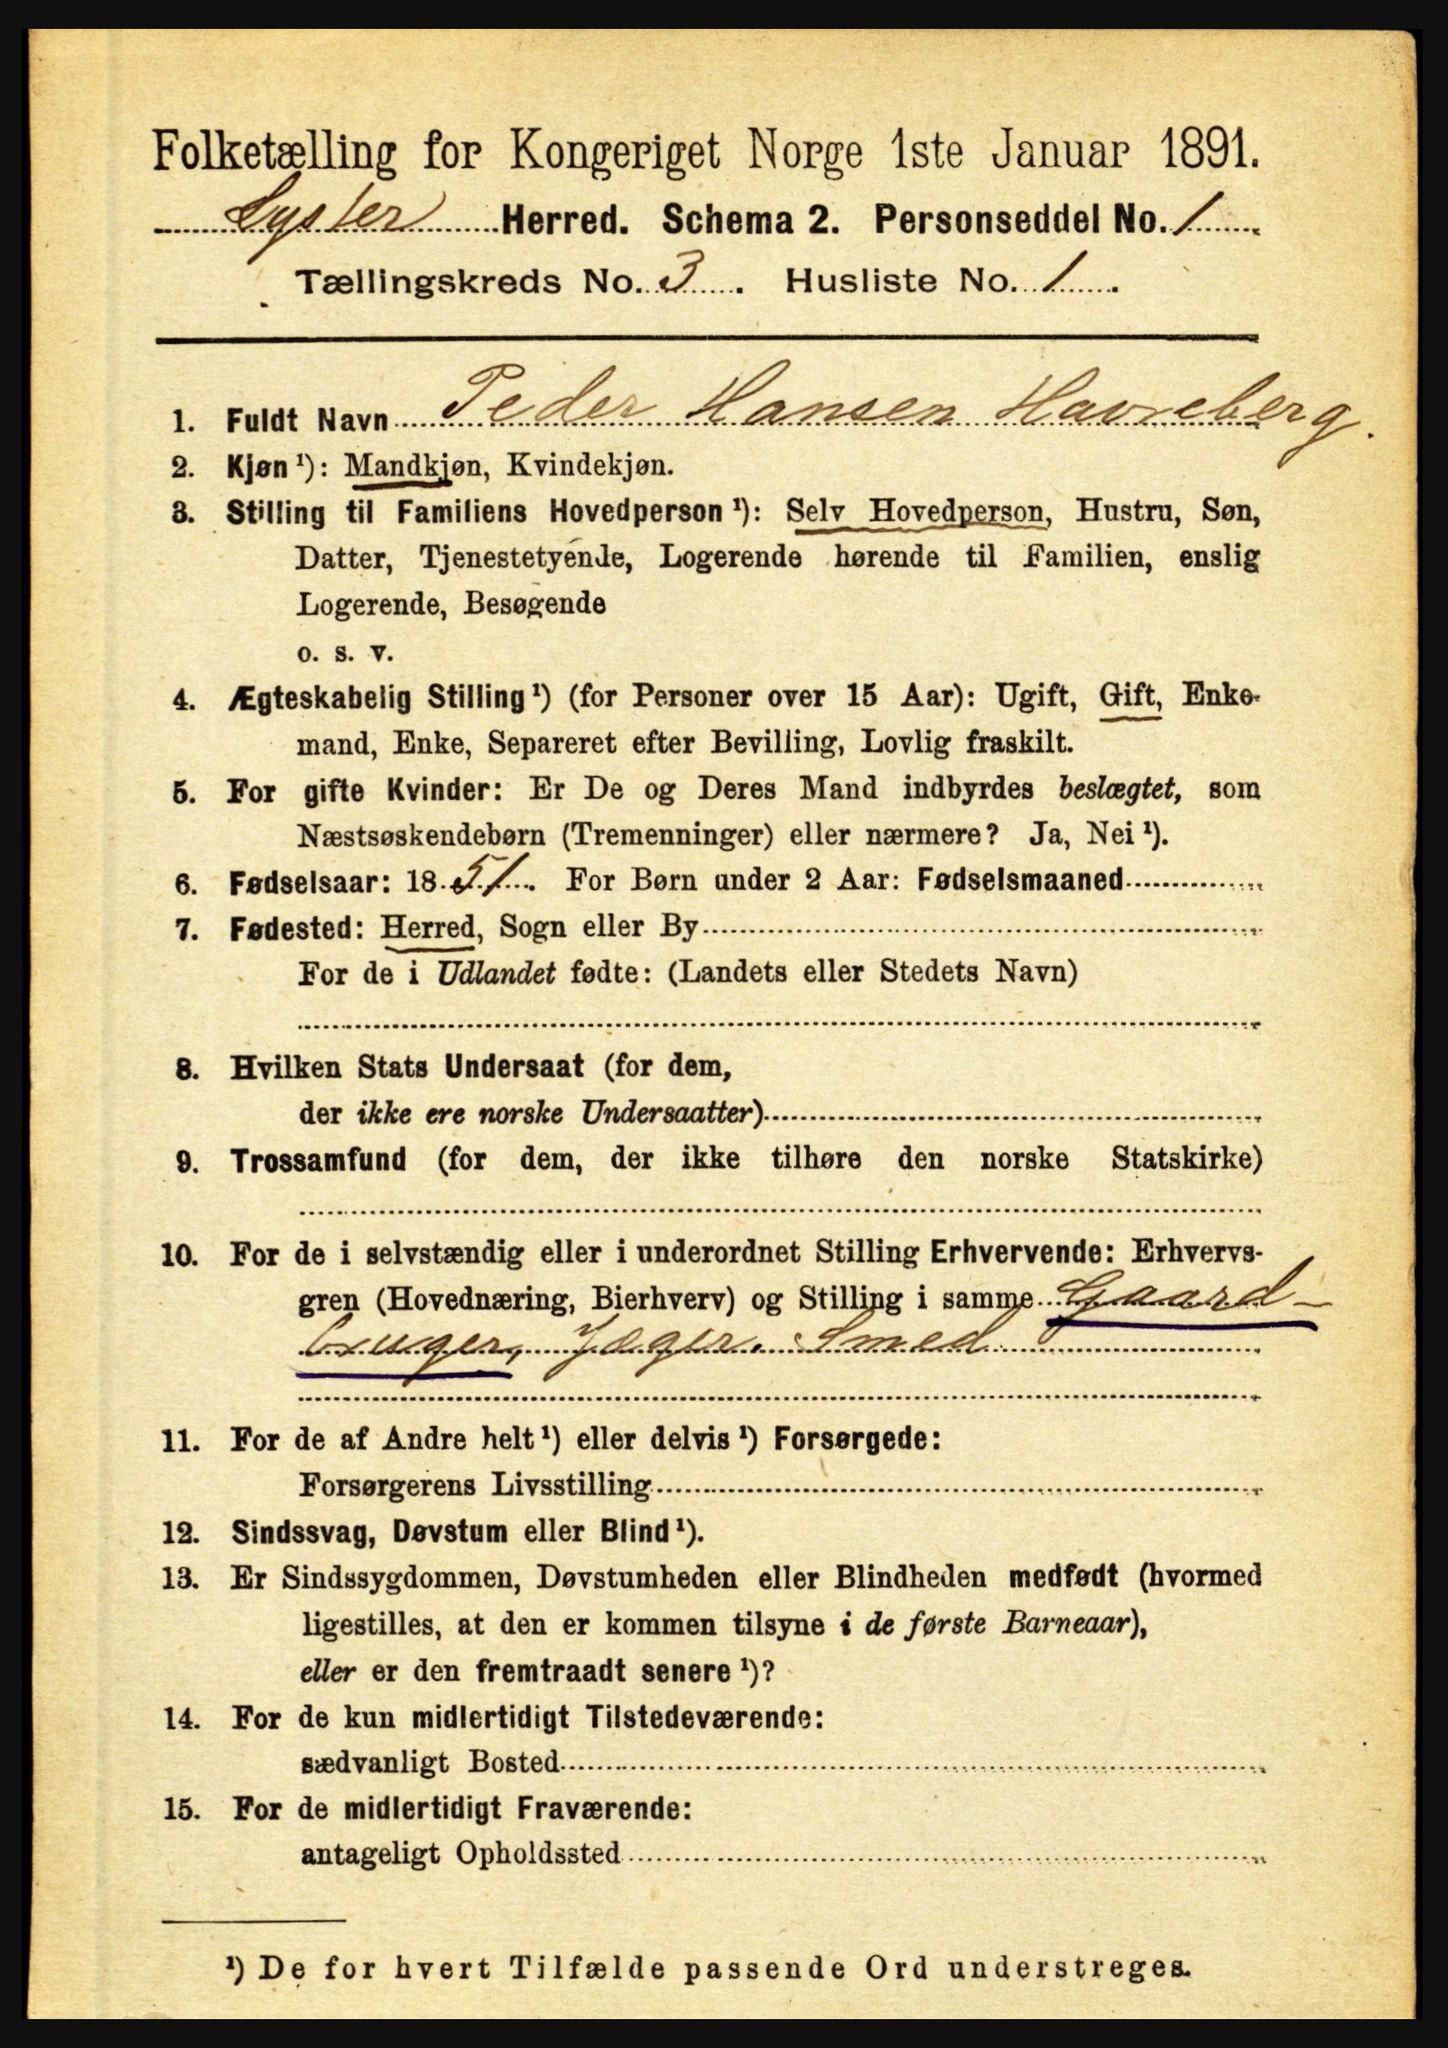 Folketælling for Kongeriget Norge 1ste Januar 1891.
Lyster Herred. Schema 2. Personseddel No. 1
Tællingskreds No. 3. Husliste No. 1.
1. Fuldt Navn Peder Hansen Havreberg.
2. Kjøn ¹): Mandkjøn, Kvindekjøn.
3. Stilling til Familiens Hovedperson ¹): Selv Hovedperson, Hustru, Søn,
Datter, Tjenestetyende, Logerende hørende til Familien, enslig
Logerende, Besøgende
o. s. v.
4. Ægteskabelig Stilling ¹) (for Personer over 15 Aar): Ugift, Gift, Enke-
mand, Enke, Separeret efter Bevilling, Lovlig fraskilt.
5. For gifte Kvinder: Er De og Deres Mand indbyrdes beslægtet, som
Næstsøskendebørn (Tremenninger) eller nærmere? Ja, Nei ¹).
6. Fødselsaar: 1851. For Børn under 2 Aar: Fødselsmaaned
7. Fødested: Herred, Sogn eller By
For de i Udlandet fødte: (Landets eller Stedets Navn)
8. Hvilken Stats Undersaat (for dem,
der ikke ere norske Undersaatter)
9. Trossamfund (for dem, der ikke tilhøre den norske Statskirke)
10. For de i selvstændig eller i underordnet Stilling Erhvervende: Erhvervs-
gren (Hovednæring, Bierhverv) og Stilling i samme Gaard-
bruger, Jæger. Smed
11. For de af Andre helt ¹) eller delvis ¹) Forsørgede:
Forsørgerens Livsstilling
12. Sindssvag, Døvstum eller Blind ¹).
13. Er Sindssygdommen, Døvstumheden eller Blindheden medfødt (hvormed
ligestilles, at den er kommen tilsyne i de første Barneaar),
eller er den fremtraadt senere ¹)?
14. For de kun midlertidigt Tilstedeværende:
sædvanligt Bosted
15. For de midlertidigt Fraværende:
antageligt Opholdssted
¹) De for hvert Tilfælde passende Ord understreges.